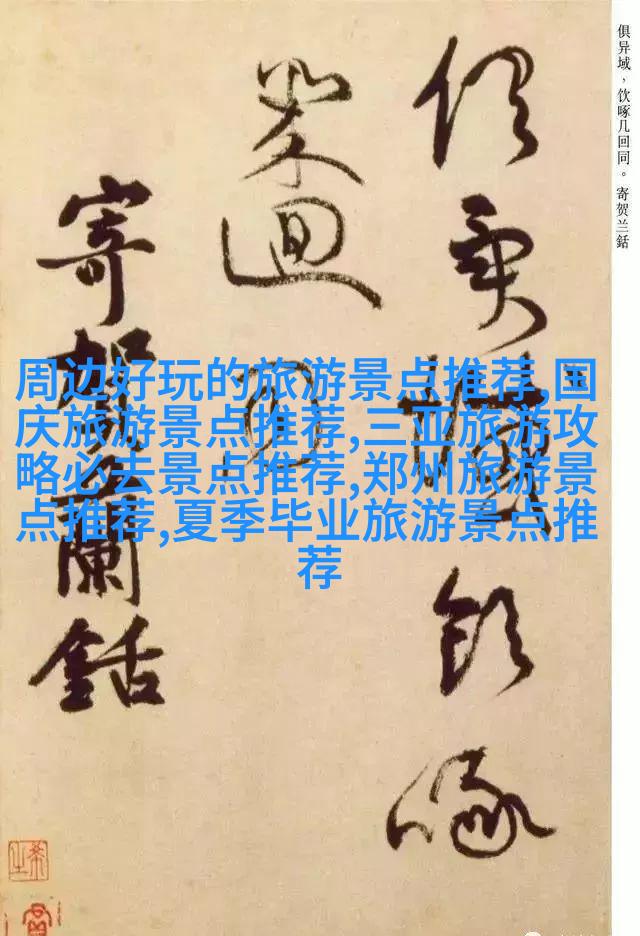 俱异域，饮啄几回同。寄贺兰銛
俱異域飲啄
幾迴同
寄賀蘭銛
周边好玩的旅游景点推荐,国
庆旅游景点推荐,三亚旅游攻
略必去景点推荐,郑州旅游景
点推荐,夏季毕业旅游景点推
荐